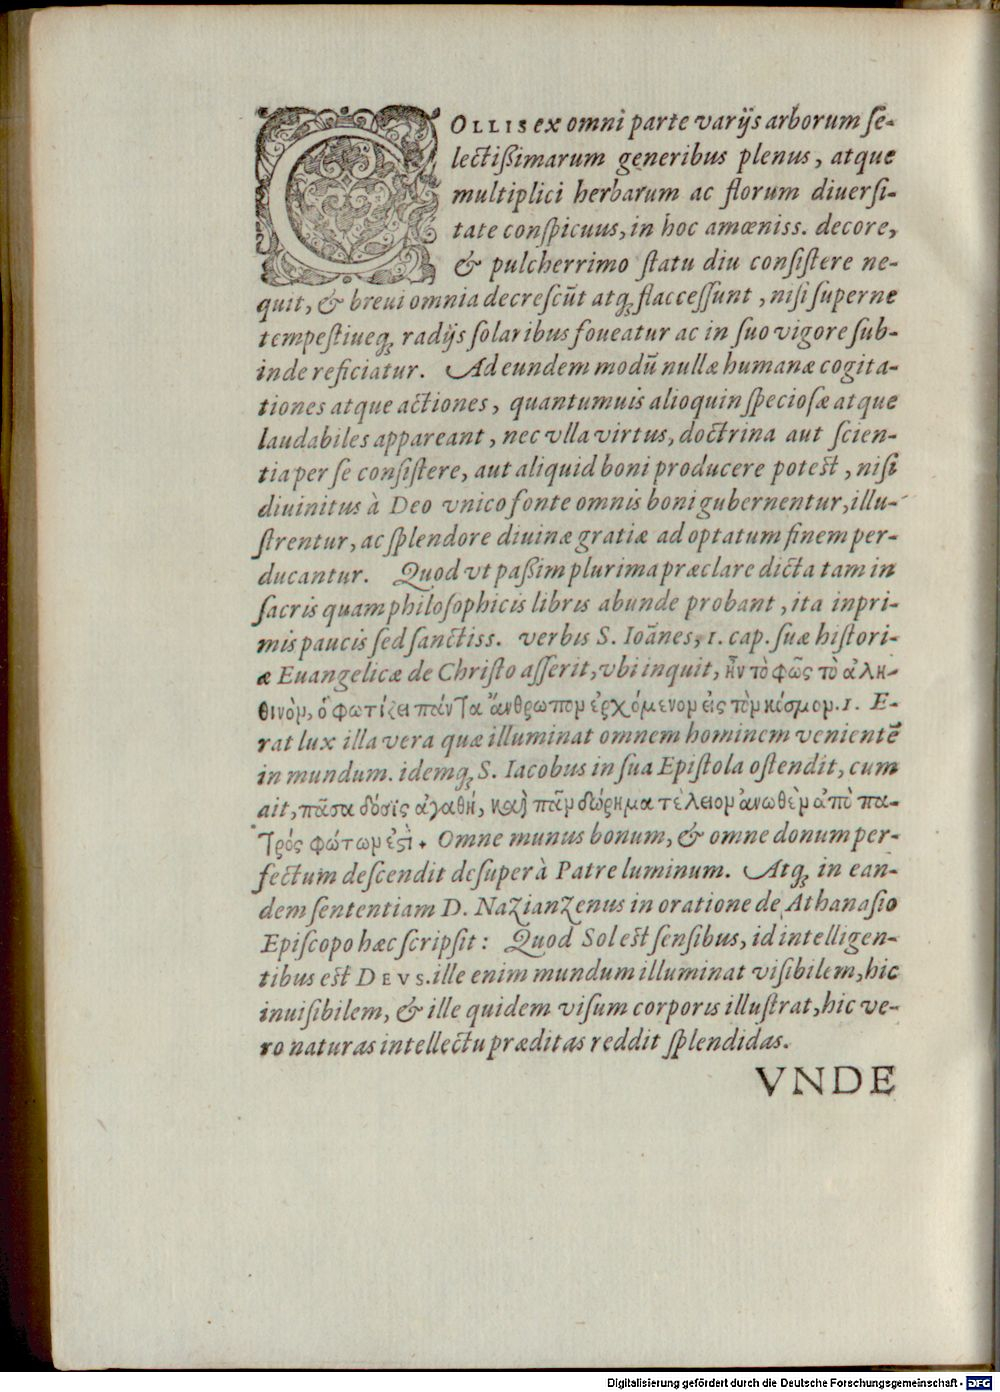 COLLIS ex omni parte varijs arborum se-
lectißimarum generibus plenus, atque
multiplici herbarum ac florum diuersi-
tate conspicuus, in hoc amœniss. decore,
& pulcherrimo statu diu consistere ne-
quit, & breui omnia decrescūt atq; flaccessunt, nisi superne
tempestiueq; radijs solaribus foueatur ac in suo vigore sub-
inde reficiatur. Ad eundem modū nullæ humanæ cogita-
tiones atque actiones, quantumuis alioquin speciosæ atque
laudabiles appareant, nec vlla virtus, doctrina aut scien-
tia per se consistere, aut aliquid boni producere potest, nisi
diuinitus à Deo vnico fonte omnis boni gubernentur, illu-
strentur, ac splendore diuinæ gratiæ ad optatum finem per-
ducantur. Quod vt paßim plurima præclare dicta tam in
sacris quam philosophicis libris abunde probant, ita inpri-
mis paucis sed sanctiss. verbis S. Ioānes, 1. cap. suæ histori-
æ Euangelicæ de Christo asserit, vbi inquit, ἦν τὸ φῶς τὸ ἀλη-
θινὸν, ὃ φωτίζει πάντα ἄνθρωπον ἐρχόμενον εἰς τὸν κόσμον. 1. E-
rat lux illa vera quæ illuminat omnem hominem venientē
in mundum. idemq; S. Iacobus in sua Epistola ostendit, cum
ait, πᾶσα δόσις ἀγαθή, καὶ πᾶν δώρημα τέλειον ἄνωθεν ἀπὸ πα-
τρός φώτων ἐστὶ. Omne munus bonum, & omne donum per-
fectum descendit desuper à Patre luminum. Atq; in ean-
dem sententiam D. Nazianzenus in oratione de Athanasio
Episcopo hæc scripsit: Quod Sol est sensibus, id intelligen-
tibus est DEVS. ille enim mundum illuminat visibilem, hic
inuisibilem, & ille quidem visum corporis illustrat, hic ve-
ro naturas intellectu præditas reddit splendidas.
VNDE
Digitalisierung gefördert durch die Deutsche Forschungsgemeinschaft - DFG